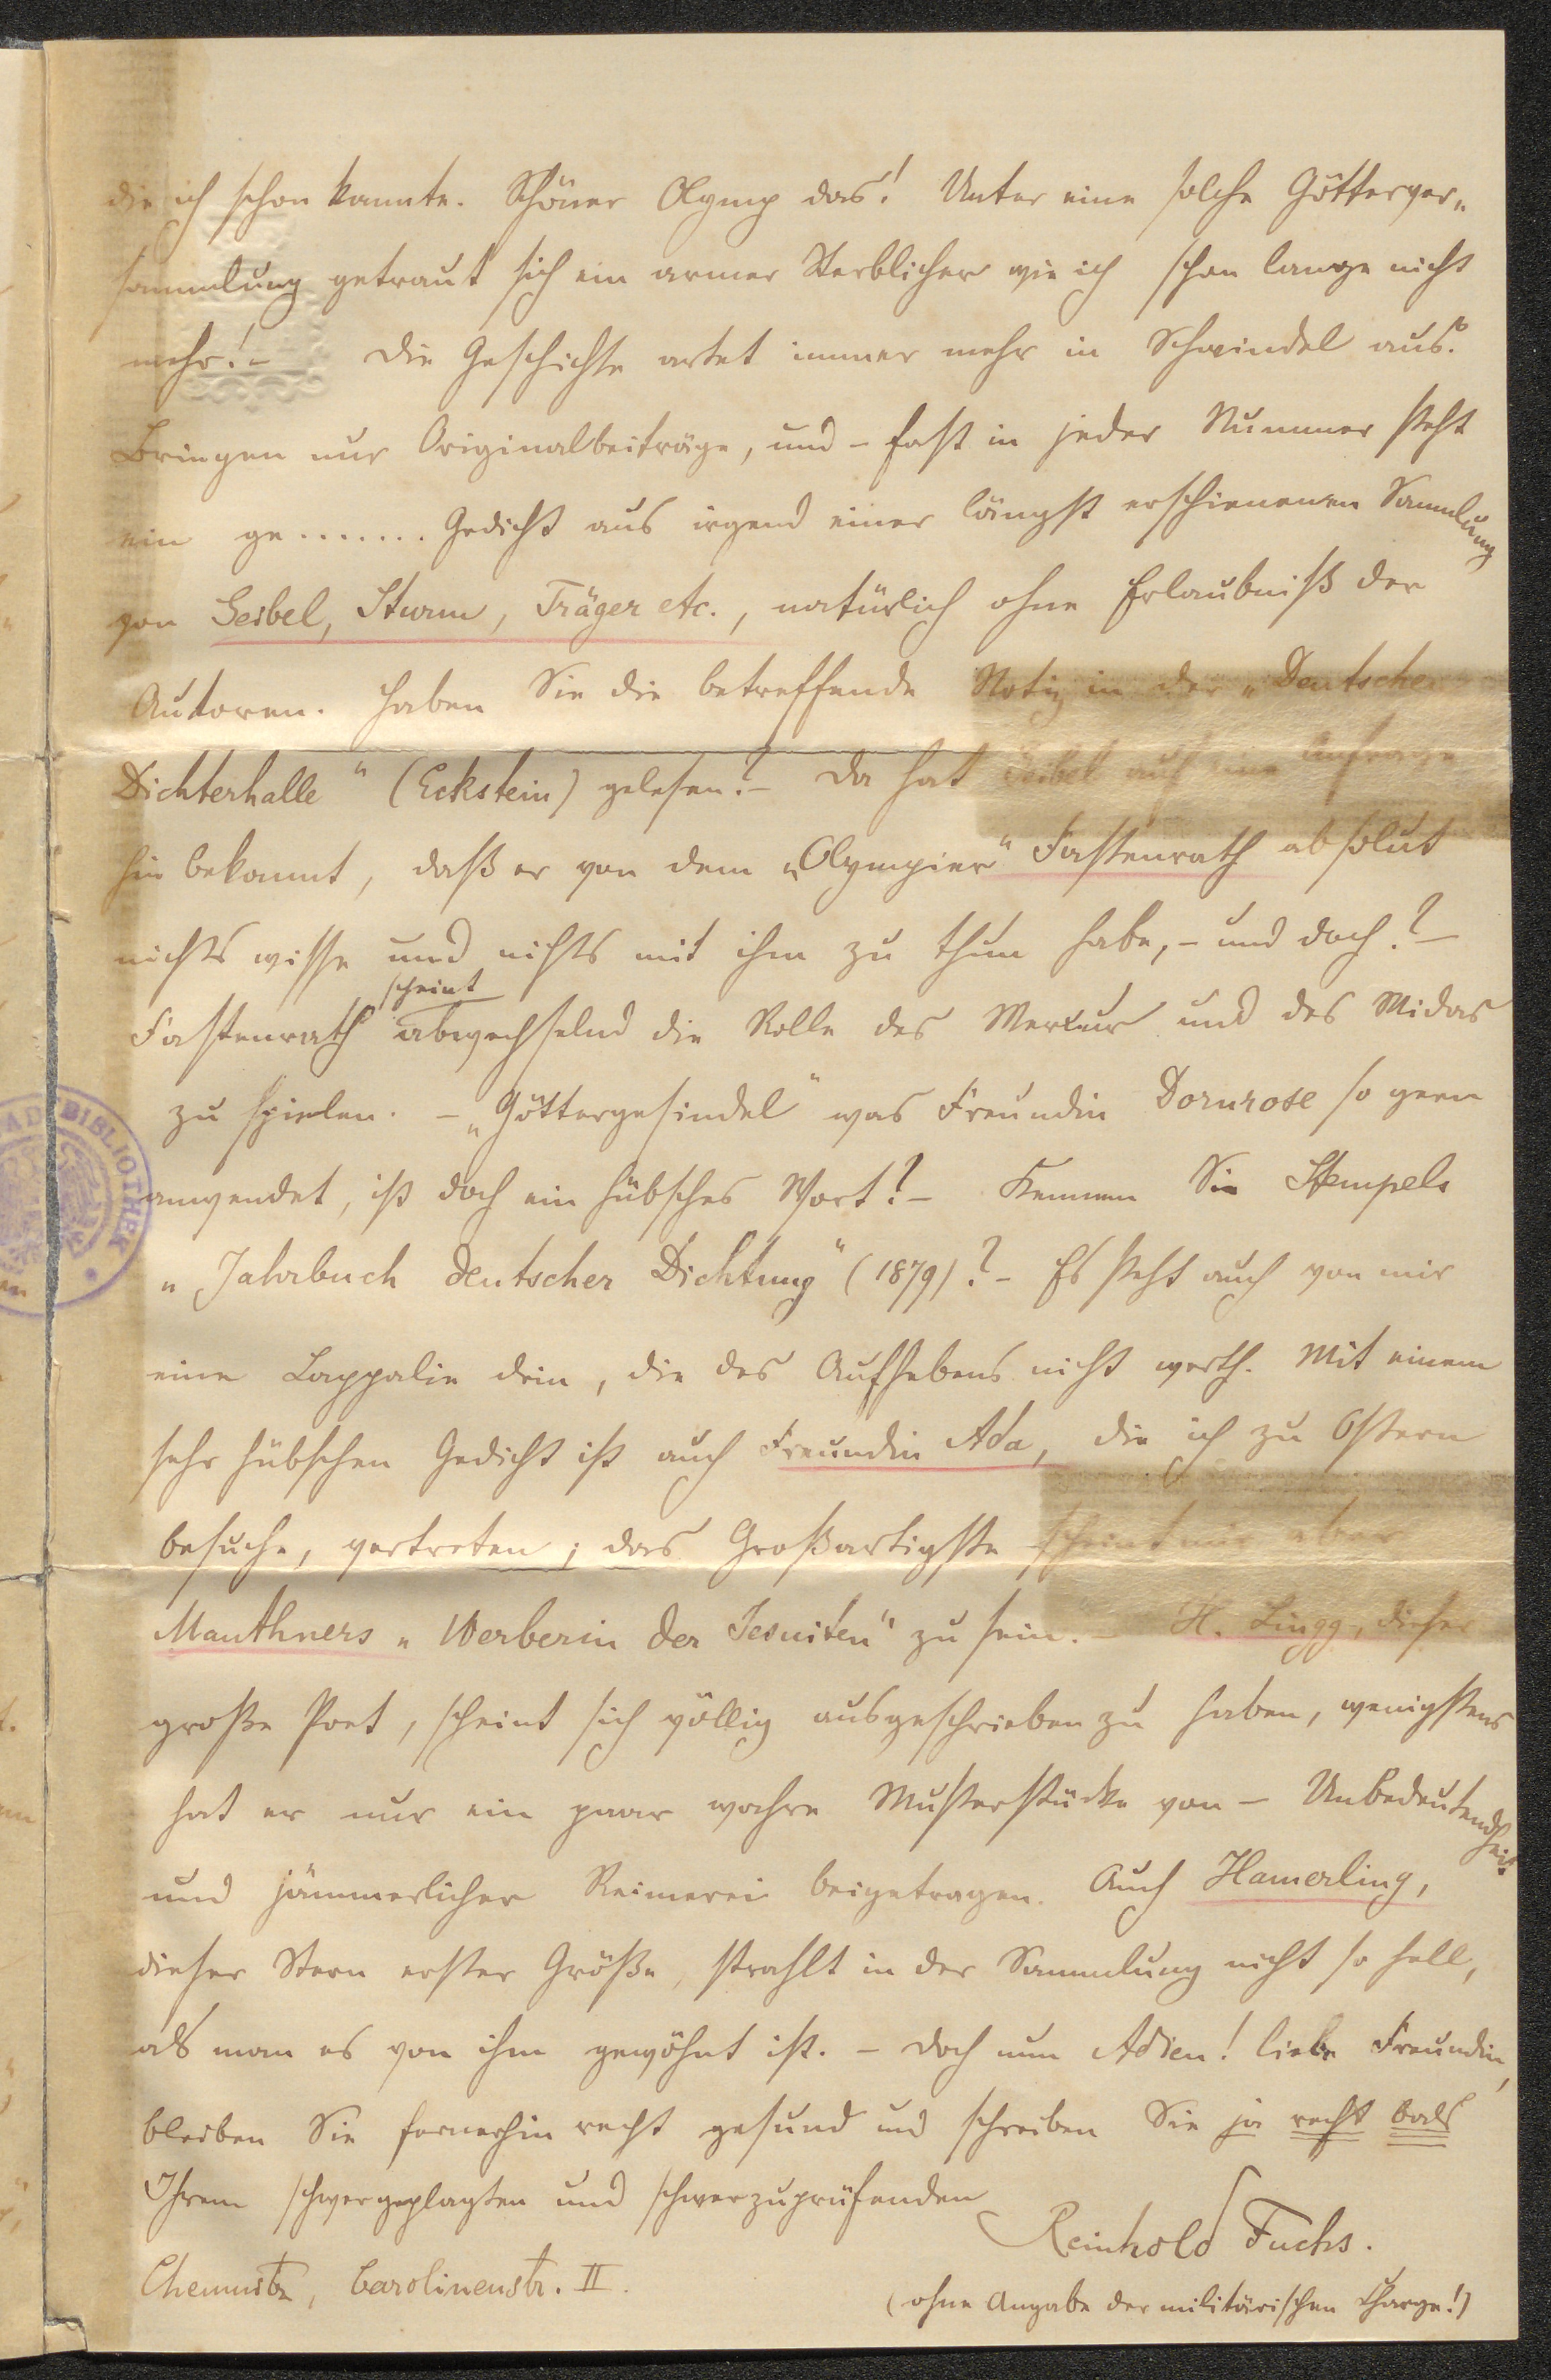 die ich schon kannte. Schöner Olymp das! Unter eine solche Götterver„
sammlung getraut sich ein armer Sterblicher wie ich schon lange nicht
mehr! – Die Geschichte artet immer mehr in Schwindel aus.
Bringen nur Originalbeiträge, und – fast in jeder Nummer steht
ein ge....... Gedicht aus irgend einer längst erschienenen Sammlung
von Geibel, Sturm, Träger etc., natürlich ohne Erlaubniß der
Autoren. Haben Sie die betreffende Notiz in der „Deutschen
Dichterhalle" (Eckstein) gelesen? – Da hat Geibel auf eine Anfrage
hin bekannt, daß er von dem „Olympier" Fastenrath absolut
nichts wisse und nichts mit ihm zu thun habe, – und doch? –
scheint
Fastenrath abwechselnd die Rolle des Merkur und des Midas
zu spielen. – „Göttergesindel" was Freundin Dornrose so gern
anwendet, ist doch ein hübsches Wort? – Kennen Sie Stempels
„Jahrbuch deutscher Dichtung" (1879)? – Es steht auch von mir
eine Lappalie drin, die des Aufhebens nicht werth. Mit einem
sehr hübschen Gedicht ist auch Freundin Ada, die ich zu Ostern
besuche, vertreten; das Großartigste scheint mir aber
Mauthners „Werberin der Jesuiten" zu sein. – H. Lingg, dieser
große Poet, scheint sich völlig ausgeschrieben zu haben, wenigstens
hat er nur ein paar wahre Musterstücke von – Unbedeutendheit
und jämmerlicher Reimerei beigetragen. Auch Hamerling,
dieser Stern erster Größe, strahlt in der Sammlung nicht so hell,
als man es von ihm gewöhnt ist. – Doch nun Adieu! liebe Freundin,
bleiben Sie fernerhin recht gesund und schreiben Sie ja recht bald
Ihrem schwergeplagten und schwerzuprüfenden
Reinhold Fuchs.
Chemnitz, Carolinenstr. II.
(ohne Angabe der militärischen Charge!)
BIBLIOTHEK